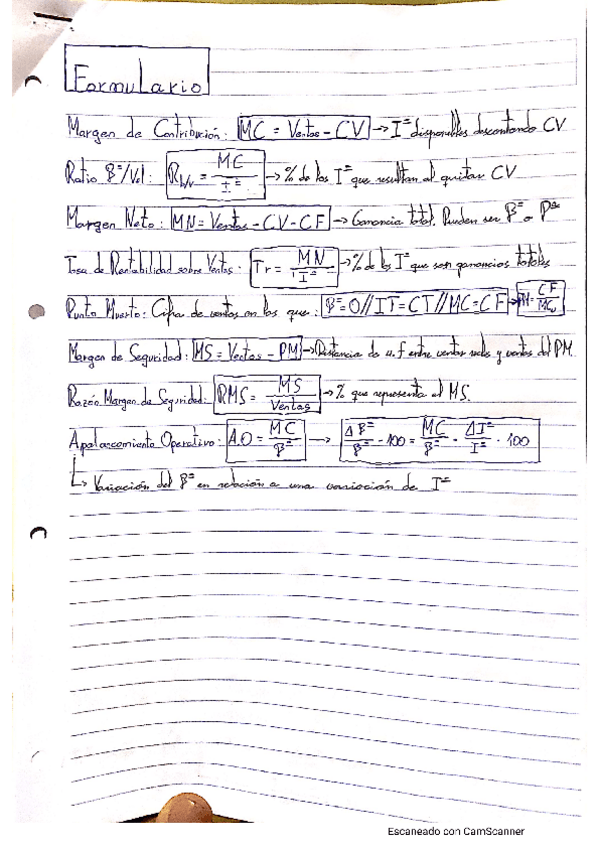 Formulario
Margen de Contribución: MC = Ventas - CV → I= disponibles descontando CV
Ratio B=/Vol: Rb/v = MC / I= → % de los I= que resultan al quitar CV
Margen Neto: MN = Ventas - CV - CF → Ganancia total. Pueden ser B= o Pas
Tasa de Rentabilidad sobre Ventas: Tr = MN / I= → % de los I= que son ganancias totales
Punto Muerto: Cifra de ventas en las que: B= = 0 // IT = CT // MC = CF → PM = CF / MCu
Margen de Seguridad: MS = Ventas - PM → Distancia de u.f entre ventas reales y ventas del PM
Razón Margen de Seguridad: RMS = MS / Ventas → % que representa el MS.
Apalancamiento Operativo: A.O = MC / B= → ΔB= / B= · 100 = MC / B= · ΔI= / I= · 100
↳ Variación del B= en relación a una variación de I=
Escaneado con CamScanner